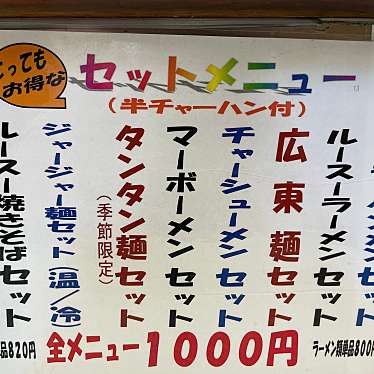 とっても
お得な
セットメニュー
(半チャーハン付)
ルースーラーメンセット
広東麺セット
チャーシューメンセット
マーボーメンセット
タンタン麺セット
(季節限定)
ジャージャー麺セット(温/冷)
ルースー焼きそばセット
品820円
全メニュー1000円
ラーメン類単品800円